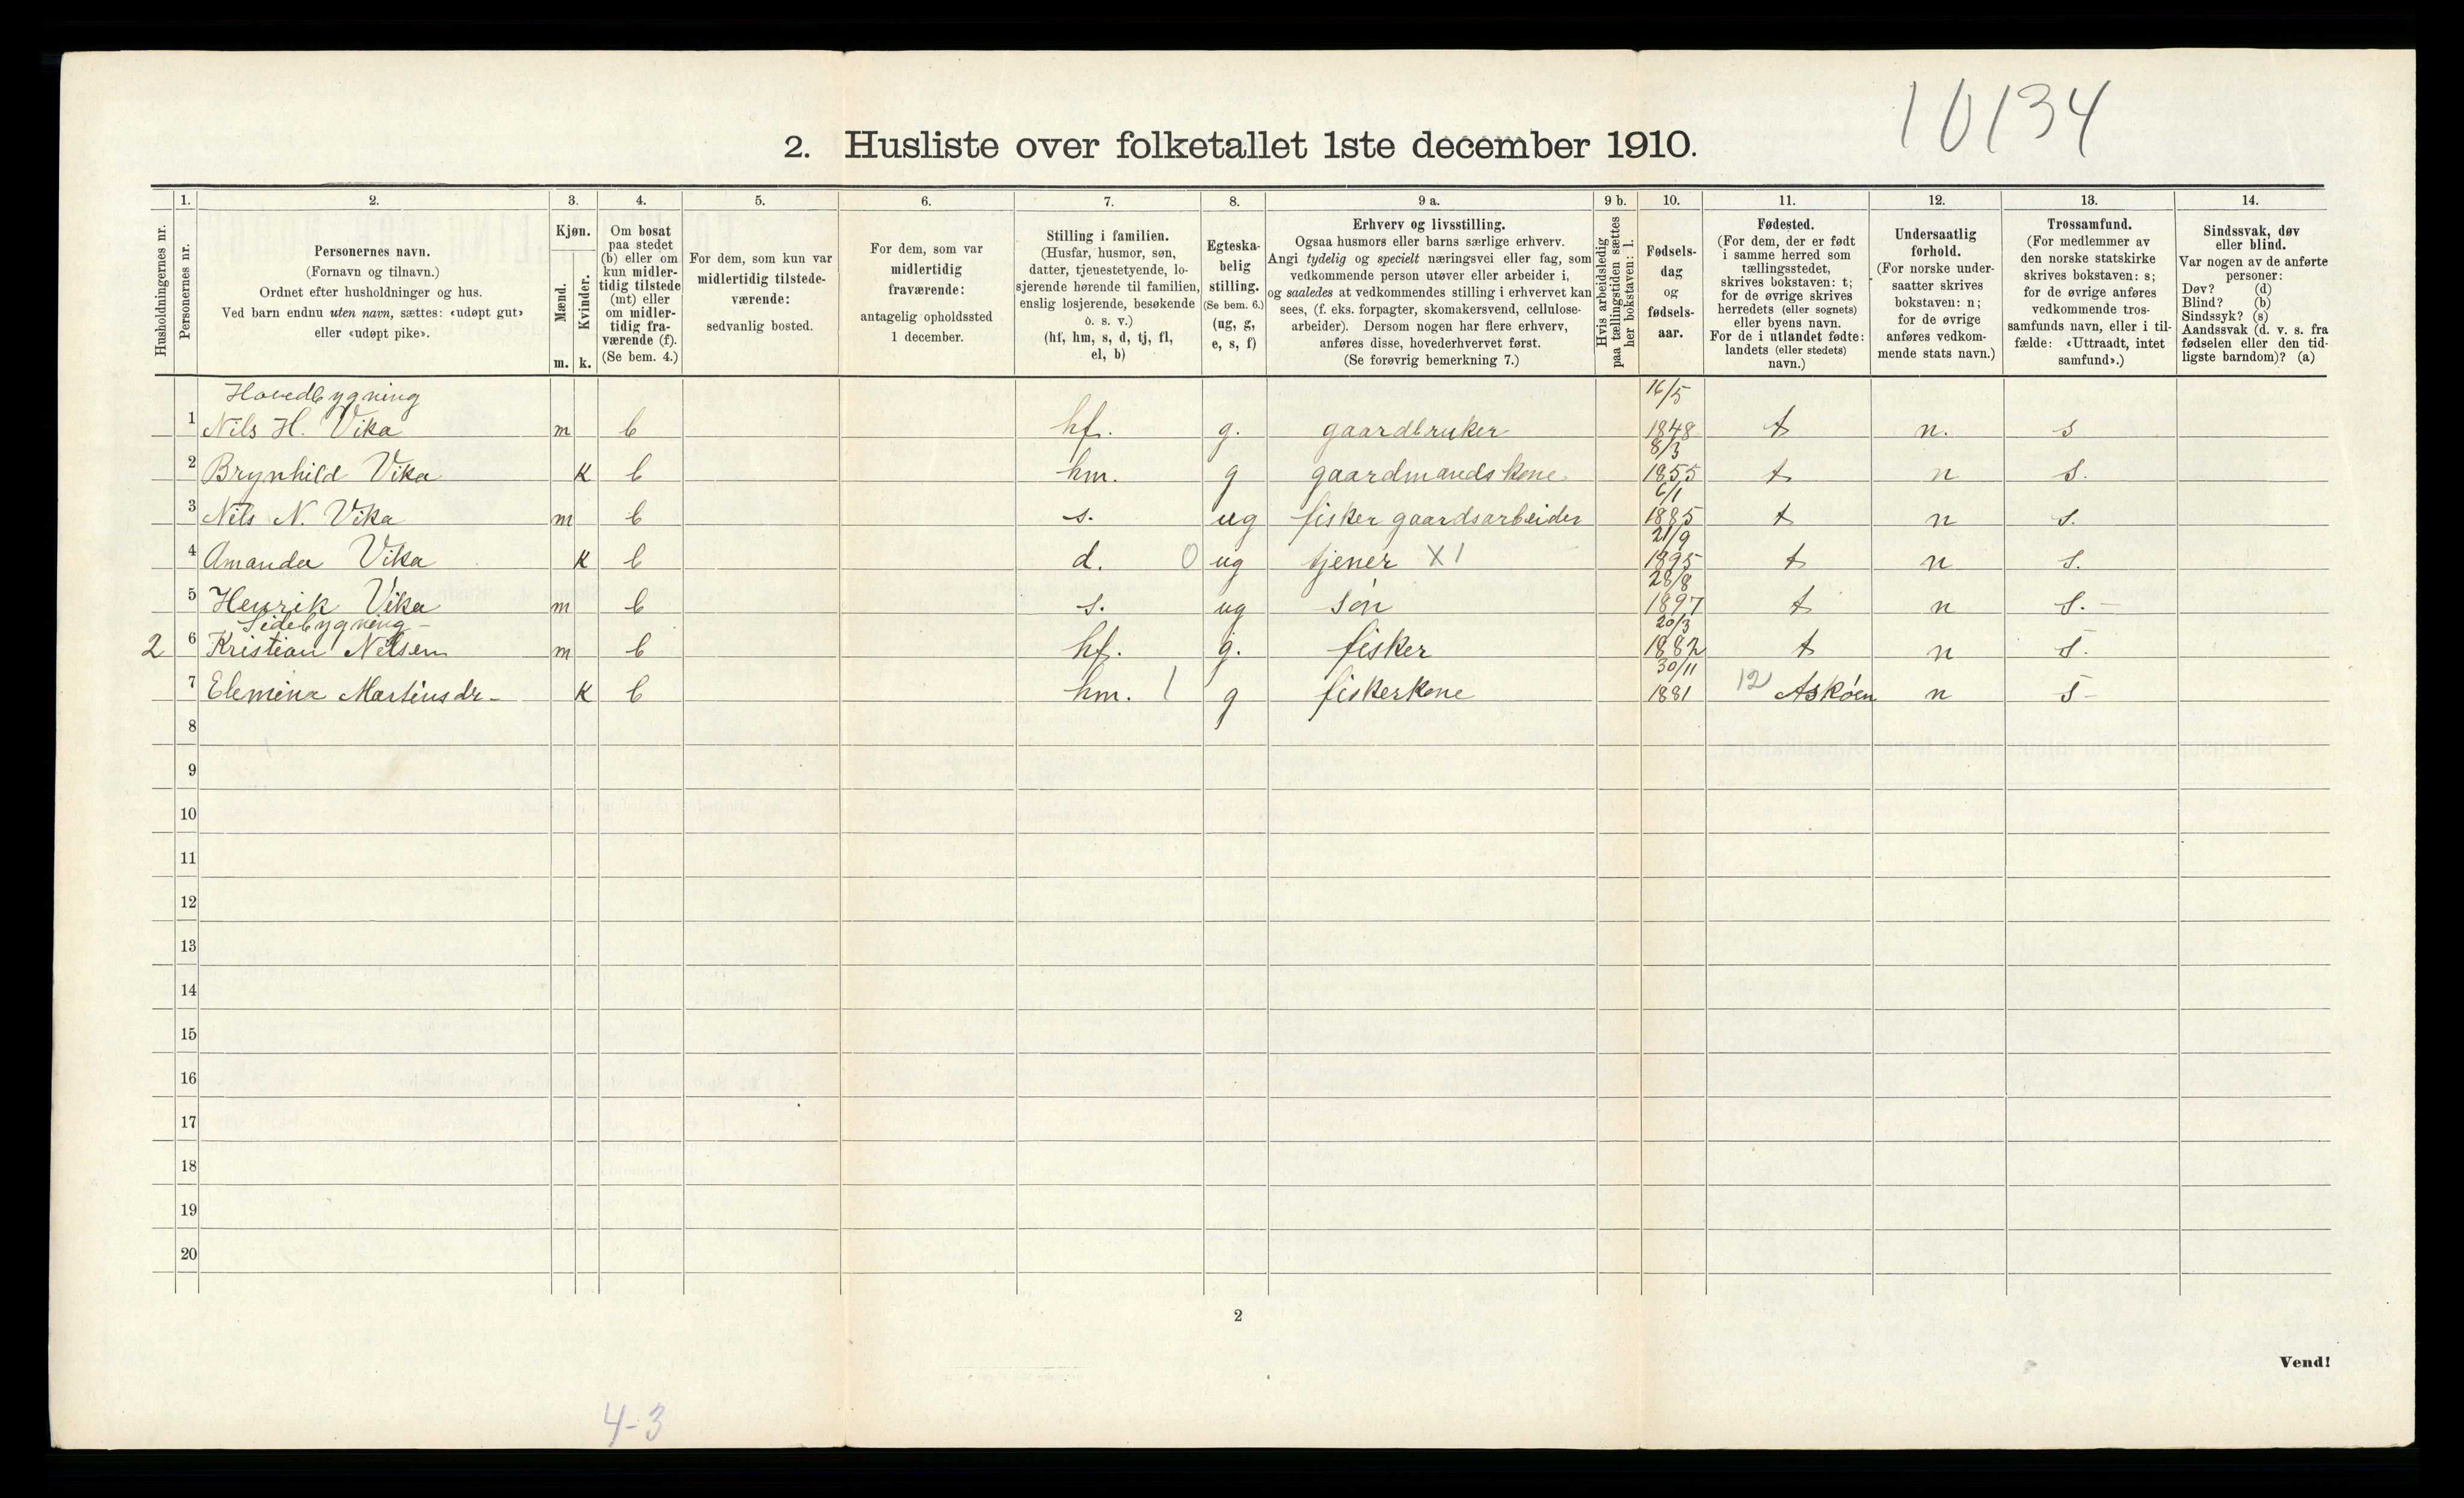 10134
2. Husliste over folketallet 1ste december 1910.
1. 2. 3. 4. 5. 6. 7. 8. 9 a. 9 b. 10. 11. 12. 13. 14.
Husholdningernes nr.
Personernes nr.
Personernes navn.
(Fornavn og tilnavn.)
Ordnet efter husholdninger og hus.
Ved barn endnu uten navn, sættes: «udøpt gut»
eller «udøpt pike».
Kjøn.
Mænd.
Kvinder.
m. k.
Om bosat
paa stedet
(b) eller om
kun midler-
tidig tilstede
(mt) eller
om midler-
tidig fra-
værende (f).
(Se bem. 4.)
For dem, som kun var
midlertidig tilstede-
værende:
sedvanlig bosted.
For dem, som var
midlertidig
fraværende:
antagelig opholdssted
1 december.
Stilling i familien.
(Husfar, husmor, søn,
datter, tjenestetyende, lo-
sjerende hørende til familien,
enslig losjerende, besøkende
o. s. v.)
(hf, hm, s, d, tj, fl,
el, b)
Egteska-
belig
stilling.
(Se bem. 6.)
(ug, g,
e, s, f)
Erhverv og livsstilling.
Ogsaa husmors eller barns særlige erhverv.
Angi tydelig og specielt næringsvei eller fag, som
vedkommende person utøver eller arbeider i,
og saaledes at vedkommendes stilling i erhvervet kan
sees, (f. eks. forpagter, skomakersvend, cellulose-
arbeider). Dersom nogen har flere erhverv,
anføres disse, hovederhvervet først.
(Se forøvrig bemerkning 7.)
Hvis arbeidsledig
paa tællingstiden sættes
her bokstaven: l.
Fødsels-
dag
og
fødsels-
aar.
Fødested.
(For dem, der er født
i samme herred som
tællingsstedet,
skrives bokstaven: t;
for de øvrige skrives
herredets (eller sognets)
eller byens navn.
For de i utlandet fødte:
landets (eller stedets)
navn.)
Undersaatlig
forhold.
(For norske under-
saatter skrives
bokstaven: n;
for de øvrige
anføres vedkom-
mende stats navn.)
Trossamfund.
(For medlemmer av
den norske statskirke
skrives bokstaven: s;
for de øvrige anføres
vedkommende tros-
samfunds navn, eller i til-
fælde: «Uttraadt, intet
samfund».)
Sindssvak, døv
eller blind.
Var nogen av de anførte
personer:
Døv? (d)
Blind? (b)
Sindssyk? (s)
Aandssvak (d. v. s. fra
fødselen eller den tid-
ligste barndom)? (a)
Hovedbygning 16/5
1 Nils H. Vika m b hf. g. gaardbruker 1848 t n. s
8/3
2 Brynhild Vika k b hm. g gaardmandskone 1855 t n s.
6/1
3 Nils N. Vika m b s. ug fisker gaardsarbeider 1885 t n s.
21/9
4 Amanda Vika k b d. 0 ug tjener X1 1895 t n s.
28/8
5 Henrik Vika m b s. ug søn 1897 t n s. –
Sidebygning – 20/3
2 6 Kristian Nilsen m b hf. g. fisker 1882 t n s.
30/11
7 Elemina Martinsdr – k b hm. 1 g fiskerkone 1881 12 Askøen n s –
8
9
10
11
12
13
14
15
16
17
18
19
20
2
Vend!
4-3